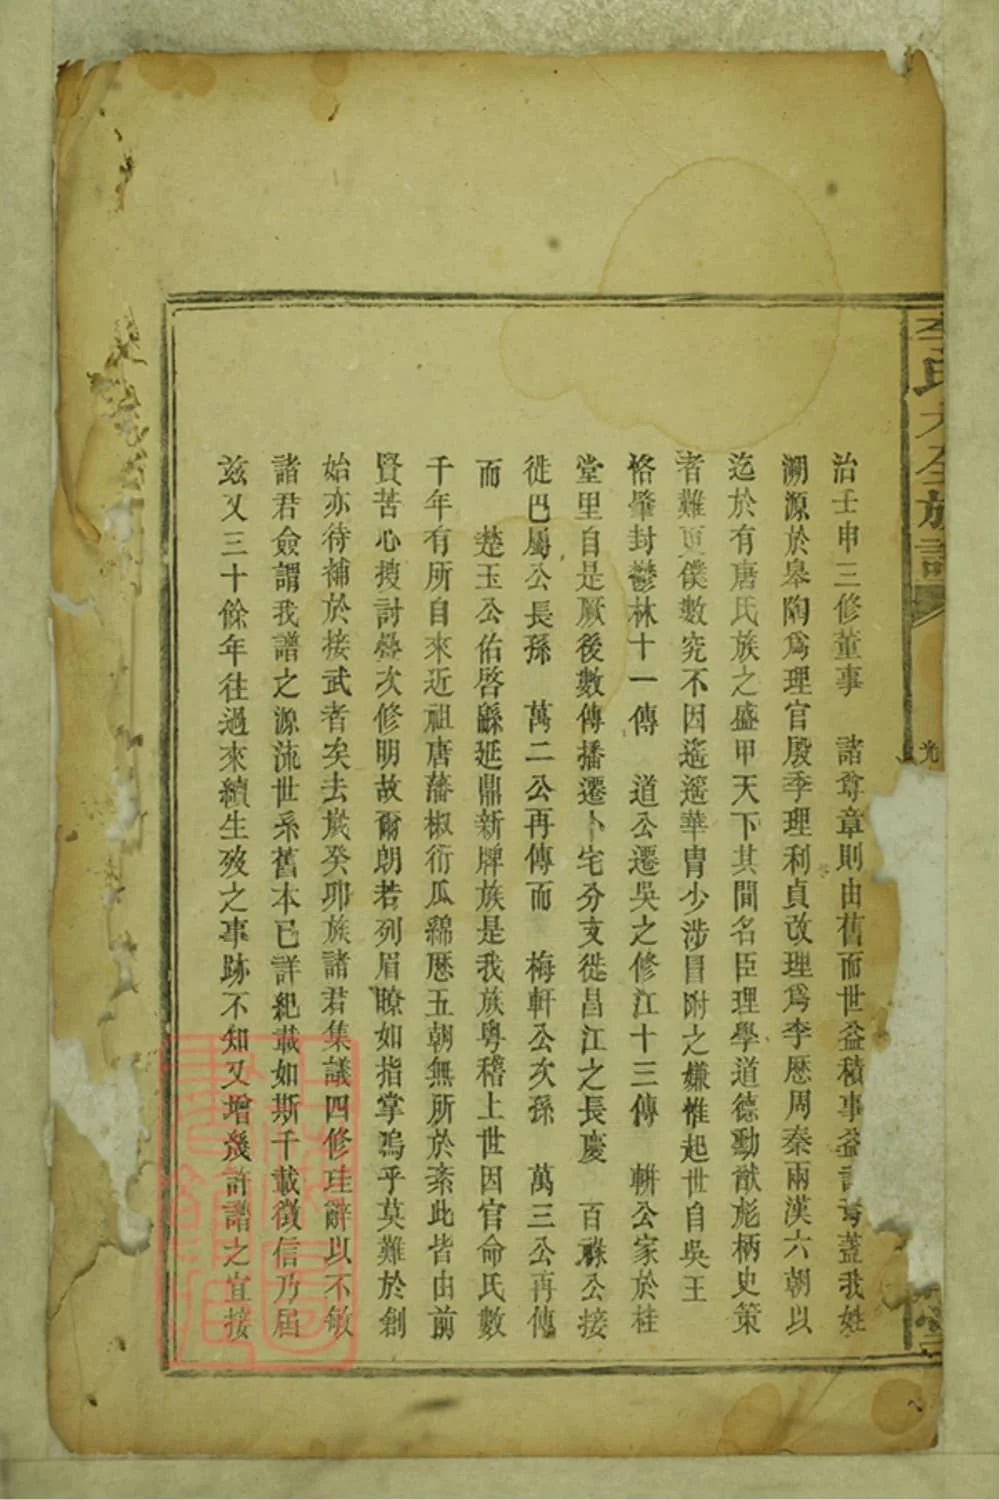 李氏大全族譜
光
治壬申三修董事　諸尊章則由舊而世益積事益詳蓋我姓
溯源於皋陶爲理官殷季理利貞改理爲李歷周秦兩漢六朝以
迄於有唐氏族之盛甲天下其間名臣理學道德勳猷彪柄史策
者難更僕數究不因遙遙華胄少涉冒附之嫌惟起世自吳王
恪肇封鬱林十一傳　道公遷吳之修江十三傳　輧公家於桂
堂里自是厥後數傳播遷卜宅分支徙昌江之長慶　百祿公接
徙巴屬公長孫　萬二公再傳而　梅軒公次孫　萬三公再傳
而　楚玉公佑啓繇延鼎新牌族是我族粵稽上世因官命氏數
千年有所自來近祖唐藩椒衍瓜綿歷五朝無所於紊此皆由前
賢苦心搜討疊次修明故爾朗若列眉瞭如指掌嗚乎莫難於創
始亦待補於接武者矣去歲癸卯族諸君集議四修珪辭以不敏
諸君僉謂我譜之源流世系舊本已詳紀載如斯千載徵信乃屆
茲又三十餘年往過來續生歿之事跡不知又增幾許譜之宜接